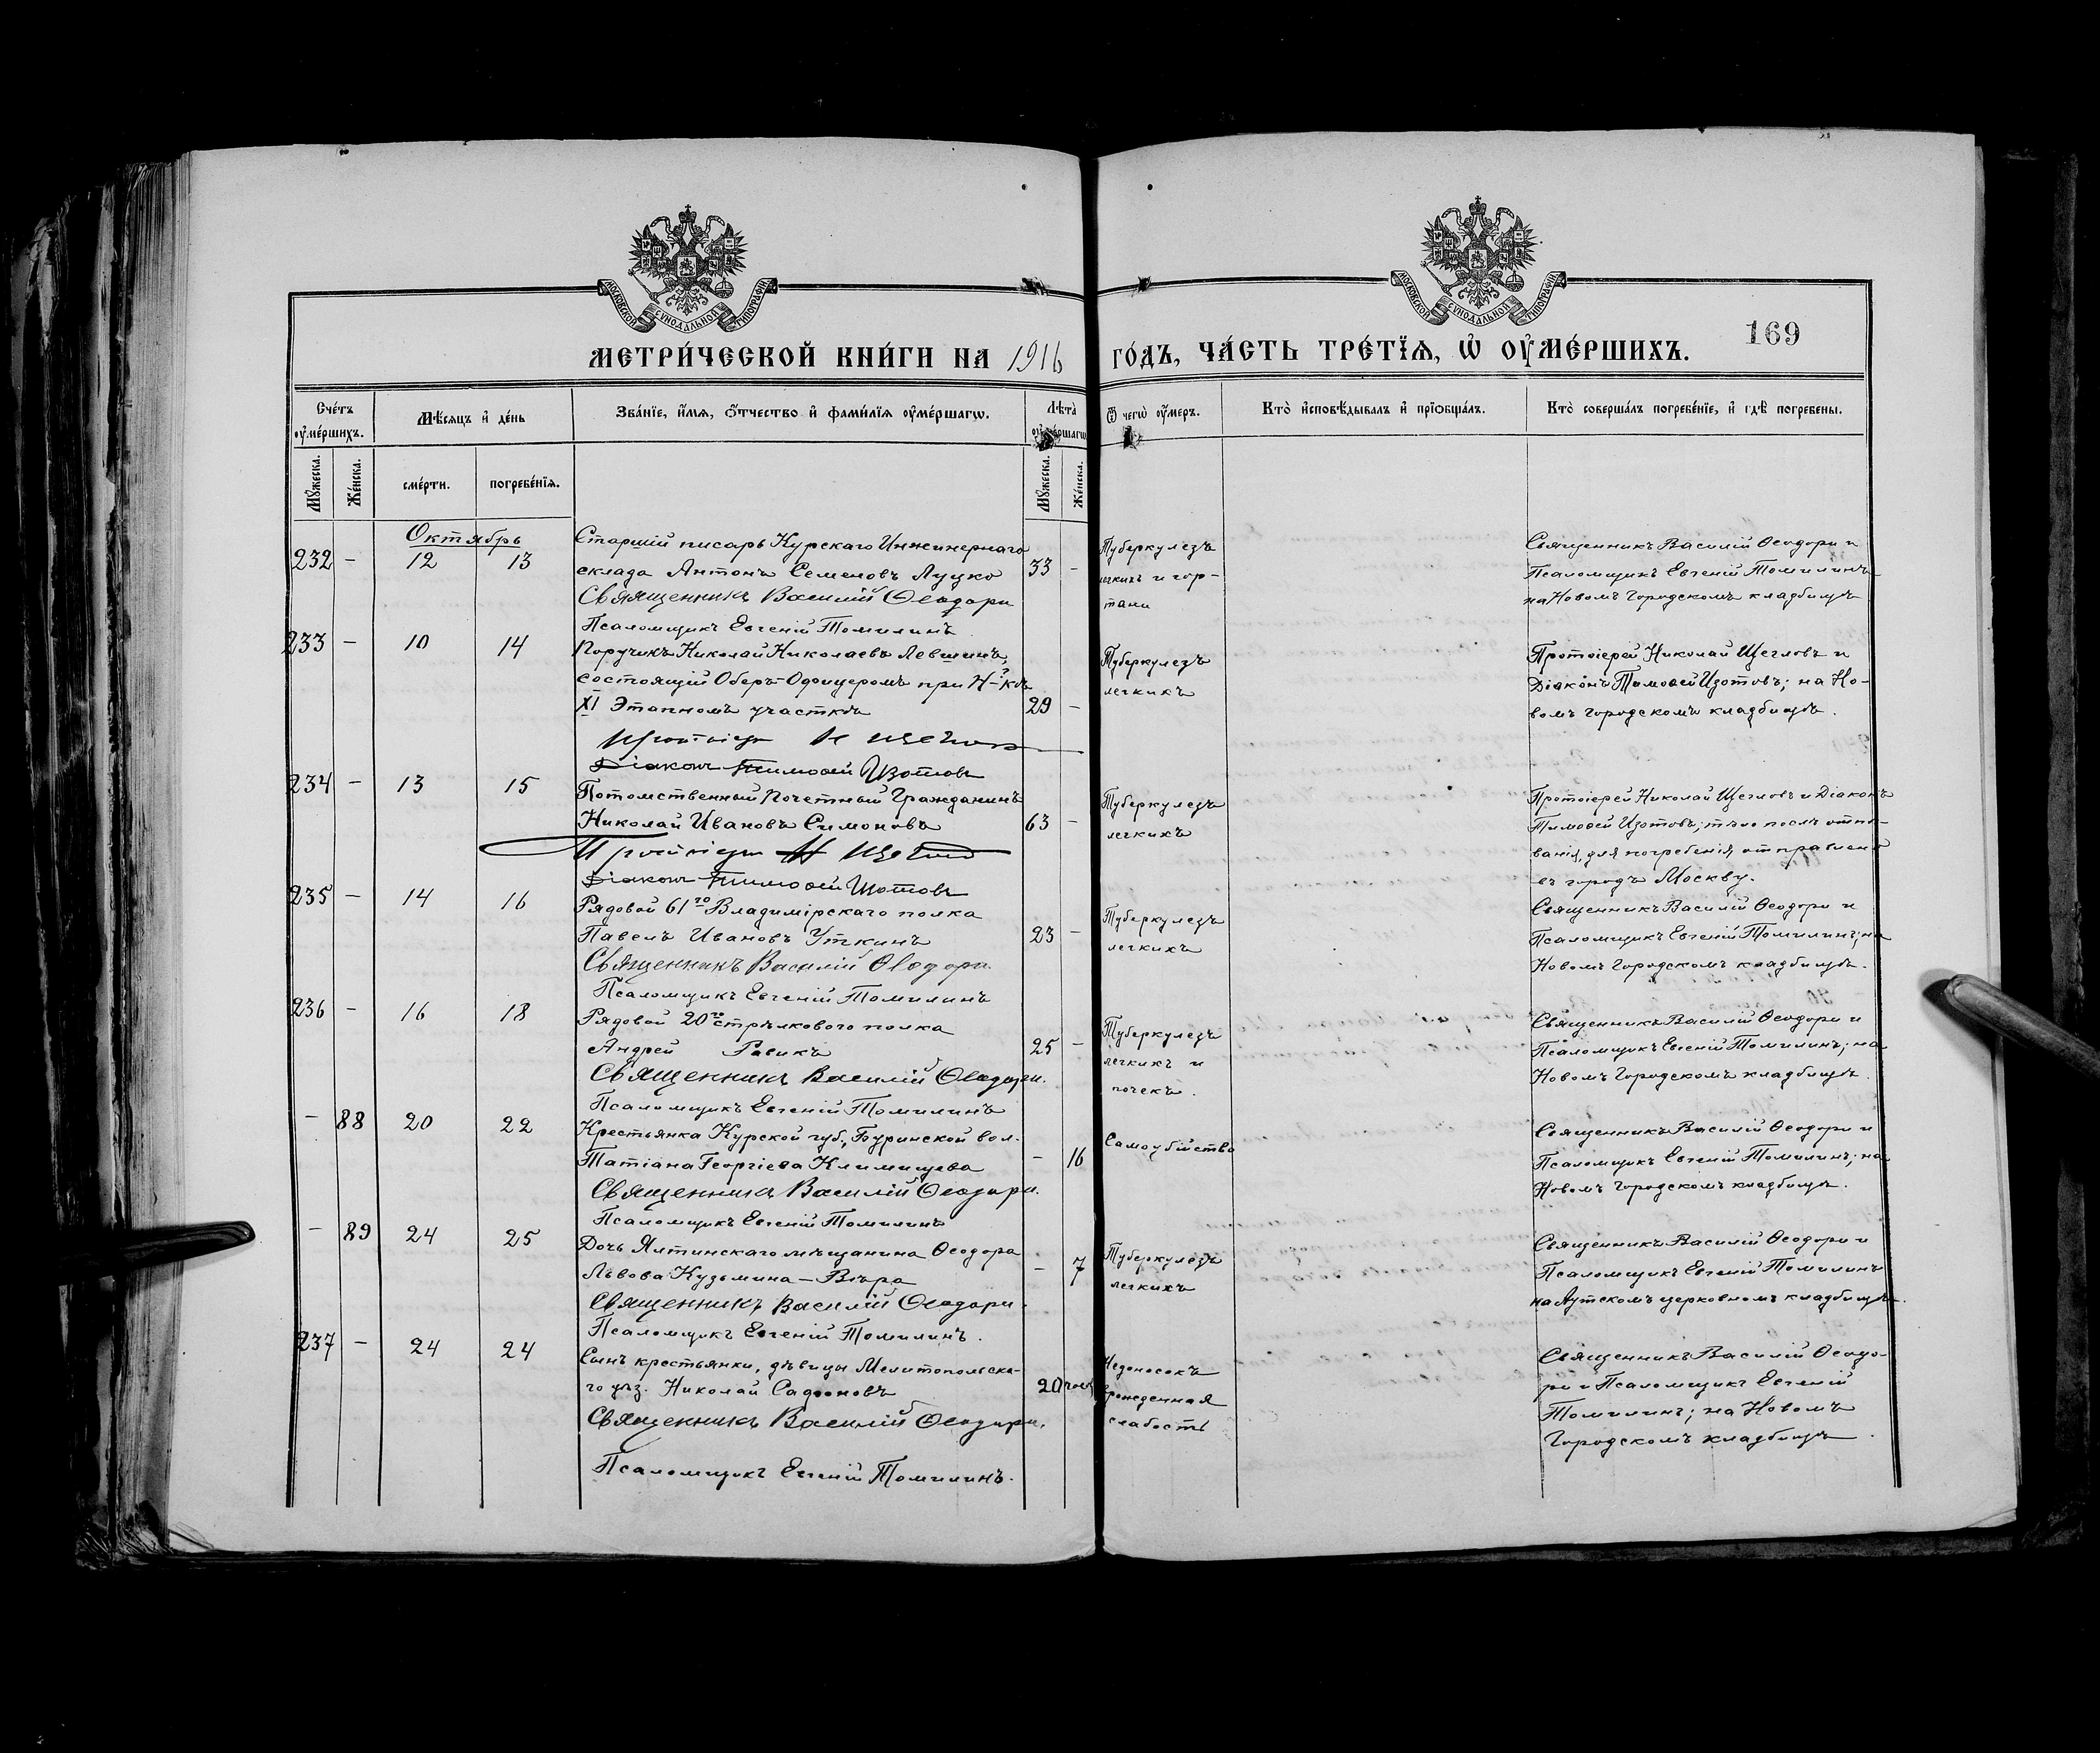 МОСКОВСКОЙ СѴНОДАЛЬНОЙ ТИПОГРАФІИ
МОСКОВСКОЙ СѴНОДАЛЬНОЙ ТИПОГРАФІИ
169
МЕТРИ́ЧЕСКОЙ КНИ́ГИ НА 1916 ГО́ДЪ, ЧА́СТЬ ТРЕ́ТЇѦ, Ѡ҆ ОУ҆МЕ́РШИХЪ.
Сче́тъ оу҆ме́ршихъ.
Мѣ́сѧцъ и҆ де́нь
Зва́нїе, и҆́мѧ, ѻ҆́тчество и҆ фами́лїѧ оу҆ме́ршагѡ.
Лѣ́та оу҆ме́ршагѡ
Ѿ чегѡ̀ оу҆́меръ.
Кто̀ и҆сповѣ́дывалъ и҆ прїѡбща́лъ.
Кто̀ соверша́лъ погребе́нїе, и҆ гдѣ̀ погребены.
Мꙋ́жеска.
Же́нска.
сме́рти.
погребе́нїѧ.
Мꙋ́жеска.
Же́нска.
Октябрь
232 – 12 13
Старшій писарь Курскаго Инженернаго
склада Антонъ Семеновъ Луцко
33 –
Священникъ Василій Ѳеодори
Псаломщикъ Евгеній Томилинъ
Туберкулезъ
легкихъ и гор-
тани
Священникъ Василій Ѳеодори и
Псаломщикъ Евгеній Томилинъ
на Новомъ Городскомъ кладбищѣ
233 – 10 14
Поручикъ Николай Николаевъ Левшинъ,
состоящій Оберъ-Офицеромъ при Н-кѣ
XI Этапномъ участкѣ
29 –
Протоіерей Н Щегловъ
Діаконъ Тимоѳей Изотовъ
Туберкулезъ
легкихъ
Протоіерей Николай Щегловъ и
Діаконъ Тимоѳей Изотовъ; на Но-
вомъ городскомъ кладбищѣ.
234 – 13 15
Потомственный Почетный Гражданинъ
Николай Ивановъ Симоновъ
63 –
Протоіерей Н Щегловъ
Діаконъ Тимоѳей Изотовъ
Туберкулезъ
легкихъ
Протоіерей Николай Щегловъ и Діаконъ
Тимоѳей Изотовъ; тѣло послѣ отпѣ-
ванія, для погребенія отправлено
въ городъ Москву.
235 – 14 16
Рядовой 61го Владимірскаго полка
Павелъ Ивановъ Уткинъ
23 –
Священникъ Василій Ѳеодори.
Псаломщикъ Евгеній Томилинъ
Туберкулезъ
легкихъ
Священникъ Василій Ѳеодори и
Псаломщикъ Евгеній Томилинъ; на
Новомъ Городскомъ кладбищѣ.
236 – 16 18
Рядовой 20го стрѣлкового полка
Андрей
25 –
Священникъ Василій Ѳеодори.
Псаломщикъ Евгеній Томилинъ
Туберкулезъ
легкихъ и
почекъ.
Священникъ Василій Ѳеодори и
Псаломщикъ Евгеній Томилинъ; на
Новомъ Городскомъ кладбищѣ.
– 88 20 22
Крестьянка Курской губ., Буринской вол.
Татіана Георгіева Климищева
– 16
Священникъ Василій Ѳеодори.
Псаломщикъ Евгеній Томилинъ
Самоубійство
Священникъ Василій Ѳеодори и
Псаломщикъ Евгеній Томилинъ; на
Новомъ Городскомъ кладбищѣ.
– 89 24 25
Дочь Ялтинскаго мѣщанина Ѳеодора
Львова Кузьмина – Вѣра
– 7
Священникъ Василій Ѳеодори.
Псаломщикъ Евгеній Томилинъ.
Туберкулезъ
легкихъ
Священникъ Василій Ѳеодори и
Псаломщикъ Евгеній Томилинъ
на Аутскомъ церковномъ кладбищѣ.
237 – 24 24
Сынъ крестьянки, дѣвицы Мелитопольска-
го уѣз. Николай Сафоновъ
20 час.
Священникъ Василій Ѳеодори.
Псаломщикъ Евгеній Томилинъ.
Недоносокъ
врожденная
слабость
Священникъ Василій Ѳеодо-
ри и Псаломщикъ Евгеній
Томилинъ; на Новомъ
Городскомъ кладбищѣ.